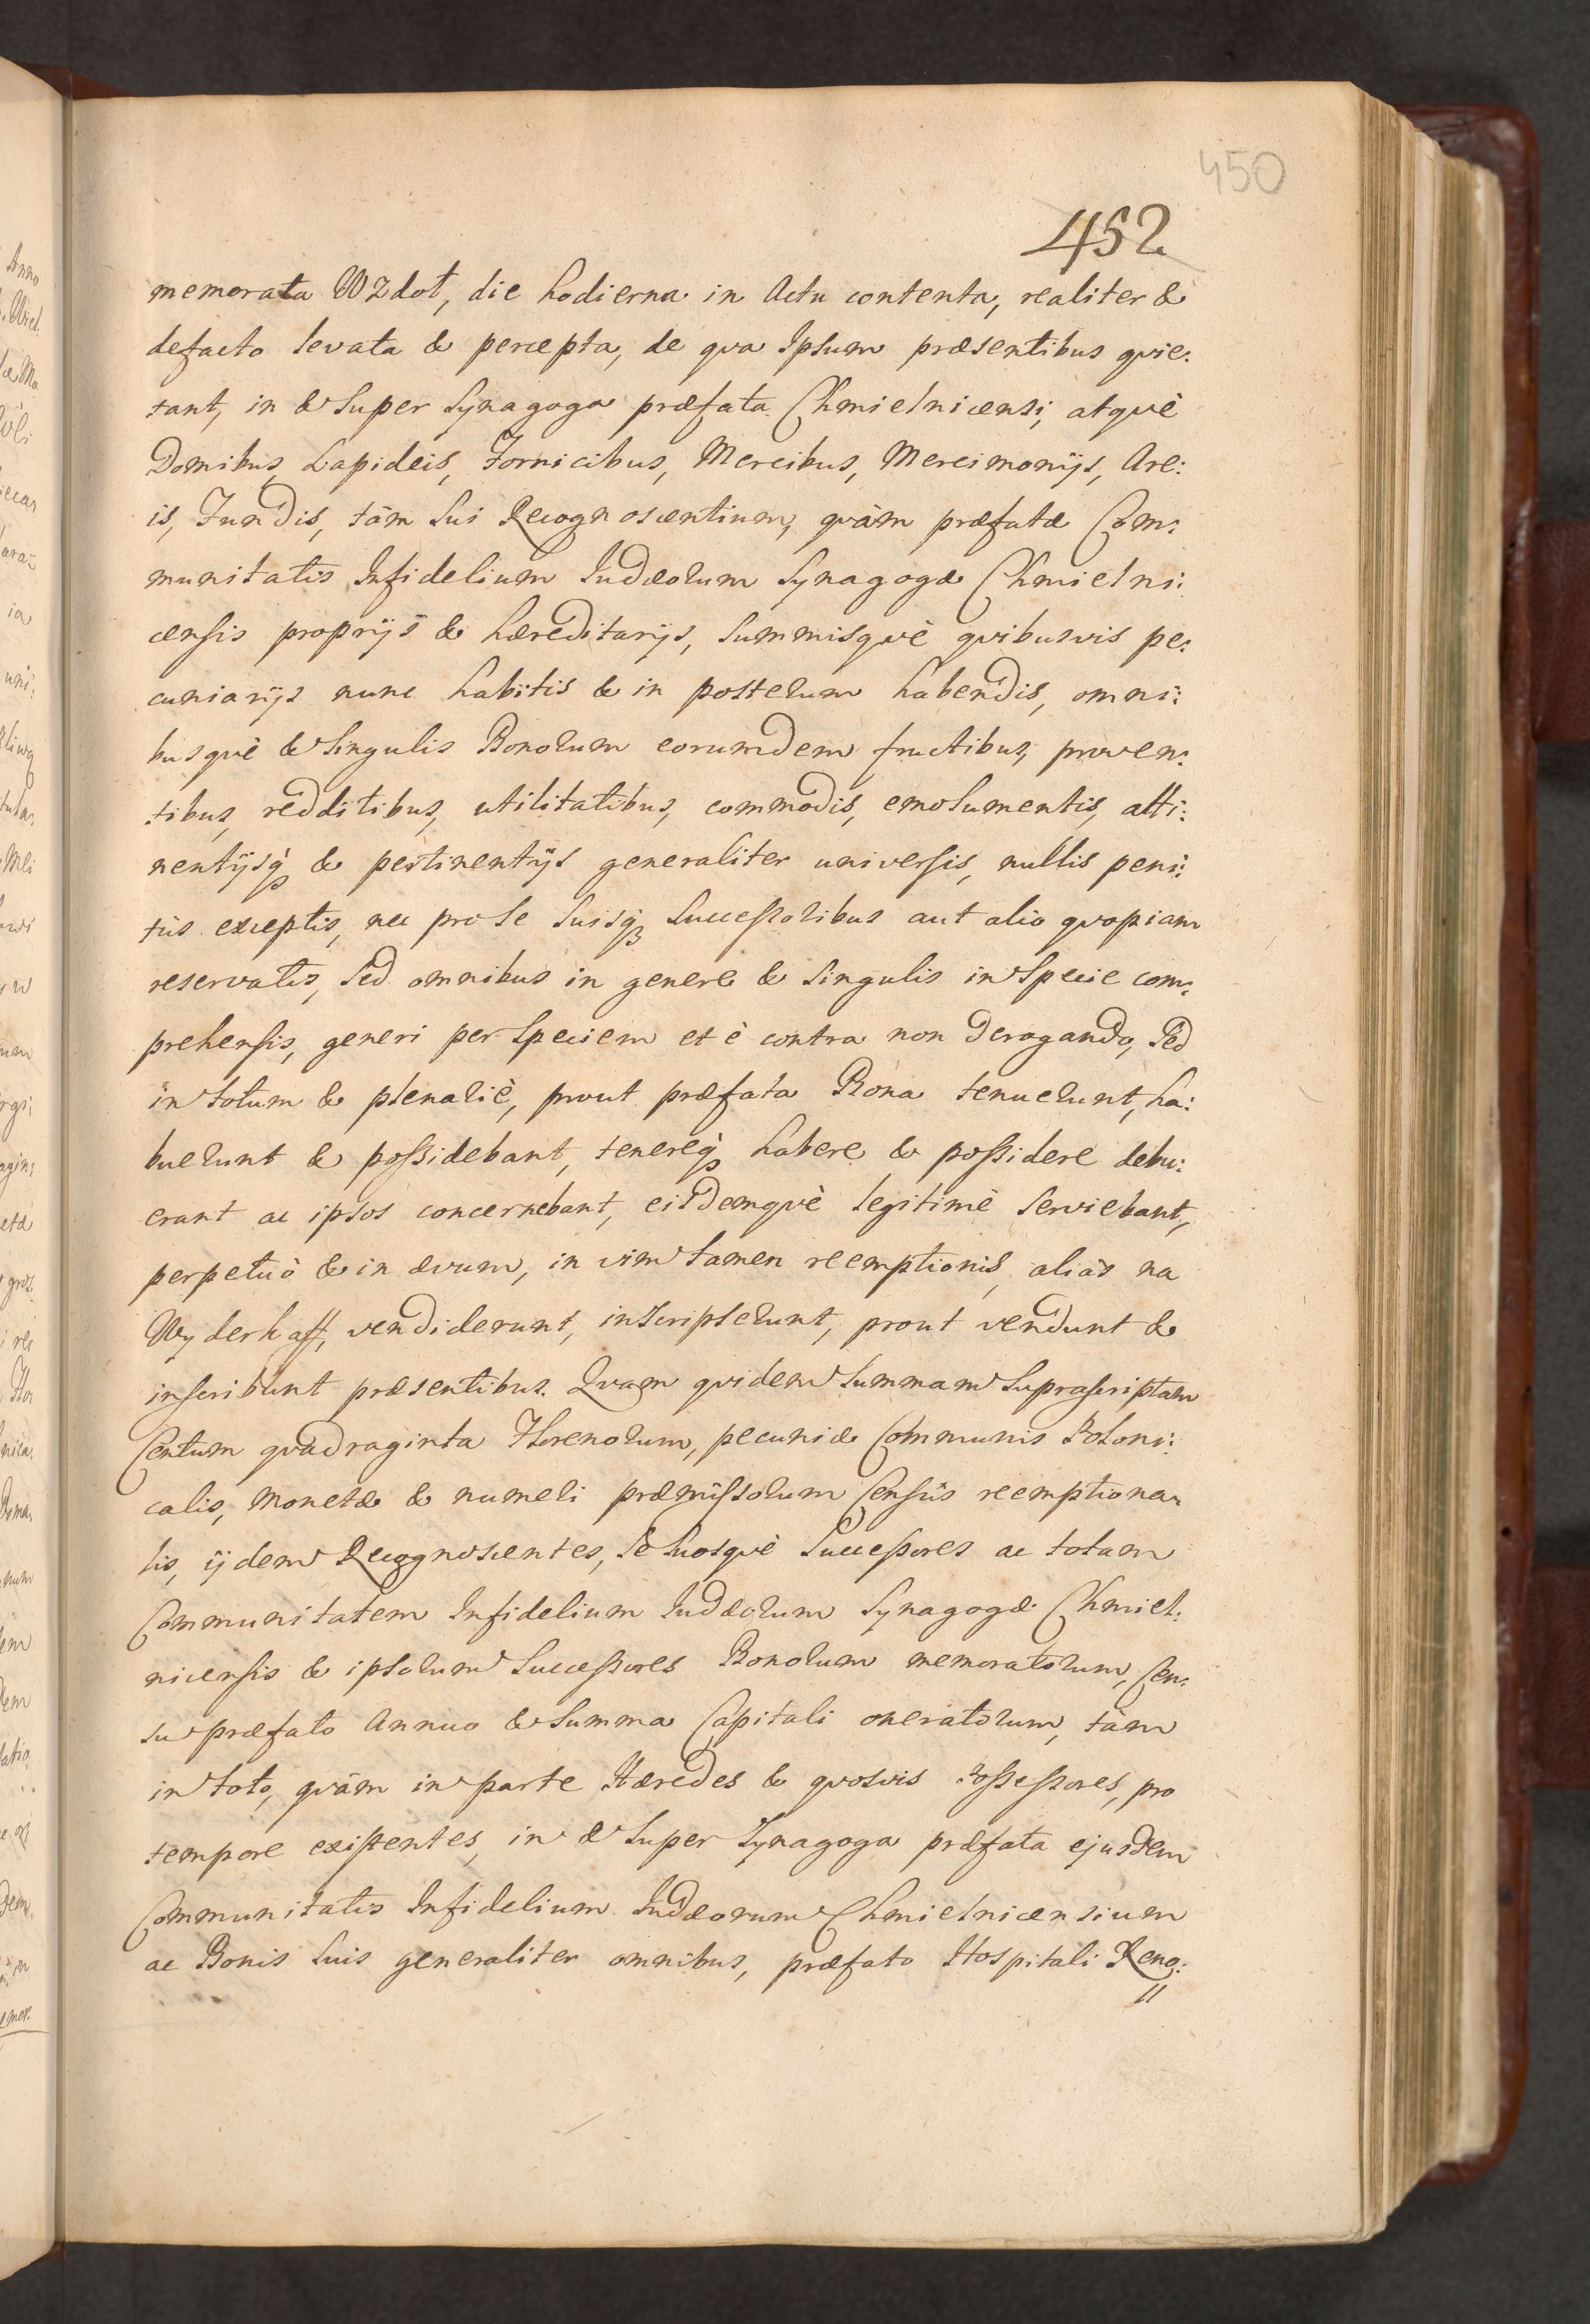 450
452
memorata Wzdoł, die hodierna in Actu contenta, realiter &
defacto levata & percepta, de qva Ipsum præsentibus qvie:
tant, in & super Synagoga præfata Chmielnicensi, atqvè
Domibus, Lapideis, Fornicibus, Mercibus, Mercimonijs, Are:
is, Fundis, tàm sui Recognoscentium, qvàm præfatæ Com:
munitatis Infidelium Judæorum Synagogæ Chmielni:
censis proprijs & hæreditarijs, summisqvè qvibusvis pe:
cuniarijs nunc habitis & in posterum habendis, omni:
busqvè & singulis Bonorum eorumdem fructibus, proven:
tibus, redditibus, utilitatibus, commodis, emolumentis, atti:
nentijsq; & pertinentijs generaliter universis, nullis peni:
tùs exceptis, nec pro se suisq; Successoribus aut alio qvopiam
reservatis, sed omnibus in genere & singulis in specie com:
prehensis, generi per speciem et è contra non derogando, sed
in totum & plenariè, prout præfata Bona tenuerunt, ha:
buerunt & possidebant, tenereq; habere & possidere debu:
erant ac ipsos concernebant, eisdemqvè legitimè serviebant,
perpetuò & in ævum, in vim tamen reemptionis, aliàs na
Wyderkaff, vendiderunt, inscripserunt, prout vendunt &
inscribunt præsentibus. Qvam qvidem Summam Suprascriptam
Centum qvadraginta Florenorum, pecuniæ Communis Poloni:
calis, Monetæ & numeri præmissorum Censûs reemptiona:
lis, ijdem Recognoscentes, Se Suosqvè Successores ac totam
Communitatem Infidelium Judæorum Synagogæ Chmiel:
nicensis & ipsorum Successores Bonorum memoratorum, Cen:
su præfato Annuo & Summa Capitali oneratorum, tàm
in toto, qvàm in parte Hæredes & qvosvis Possessores, pro
tempore existentes, in & super Synagoga præfata ejusdem
Communitatis Infidelium Judæorum Chmielnicensium
ac Bonis suis generaliter omnibus, præfato Hospitali Reno: